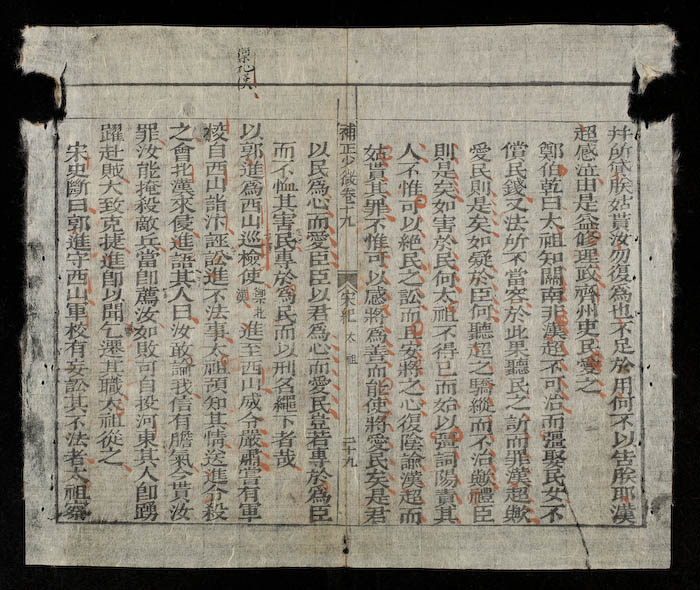 并所貸朕姑貰汝勿復為也不足於用何不以告朕耶漢
超感泣由是益修理政齊州吏民愛之
鄭伯乾曰太祖知關南非漢超不可治而彊娶民女不
償民錢又法所不當容於此果聽民之訴而罪漢超歟
愛民則是矣如疑於臣何聽超之驕縱而不治歟禮臣
則是矣如害於民何太祖不得已而始以彊詞陽責其
人不惟可以絶民之訟而民安將之心復陰諭漢超而
姑貰其罪不惟可以感將為善而能使將愛民矣是君
補正少微卷二九
宋紀
太祖
二十九
以民為心而愛臣臣以君為心而愛民豈若專於為臣
而不恤其害民專於為民而以刑名繩下者哉
以郭進為西山巡檢使
禦北漢
禦北漢
進至西山威令嚴肅嘗有軍
校自西山詣汴誣訟進不法事太祖頡知其情送進令殺
之會北漢來侵進語其人曰汝敢論我信有膽氣今貰汝
罪汝能掩殺敵兵當卽薦汝如敗可自投河東其人卽踴
躍赴賊大致克捷進卽以聞乞遷其職太祖從之
宋史斷曰郭進守西山軍校有妄訟其不法者太祖察